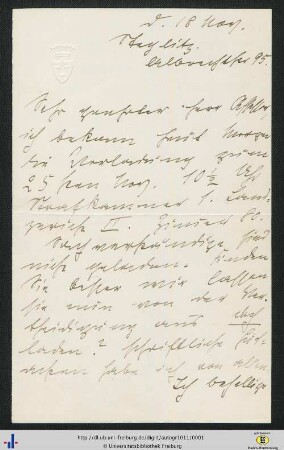 d. 18 Nov.
Steglitz.
Albrechtstr 95.
Sehr geehrter Herr
ich bekam heut Morgen
die Vorladung zum
25sten Nov. 10½ Uhr
Strafkammer 1. Land-
gericht II. Zimmer 80.
Sachverständige sind
nicht geladen. Finden
Sie besser wir lassen
sie nun von der Ver-
theidigung aus
laden? Schriftliche Gut-
achten habe ich von allen
Ich
http://dl.ub.uni-freiburg.de/diglit/autogr1011/0001
© Universitätsbibliothek Freiburg